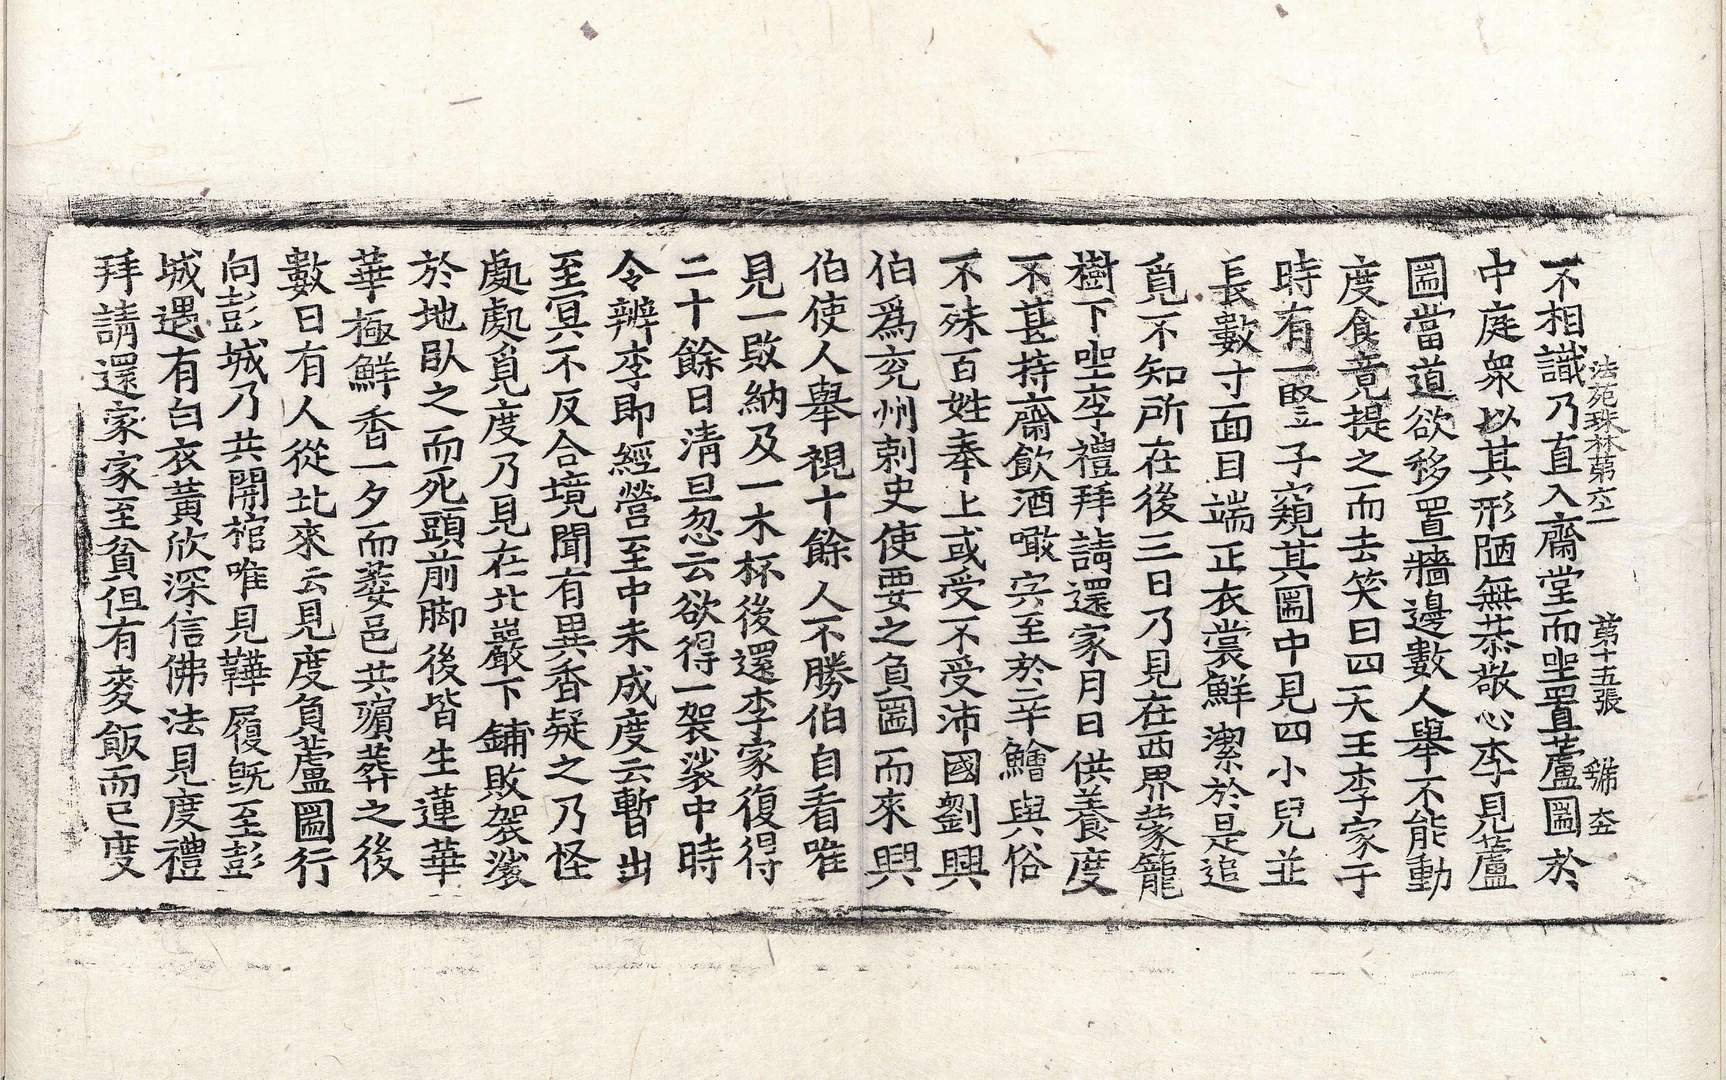 法苑珠林第六十一 第十五張 錦 夲
不相識乃直入齋堂而坐置蘆圌於
中庭衆以其形陋無恭敬心李見蘆
圌當道欲移置牆邊數人舉不能動
度食竟提之而去笑曰四天王李家于
時有一竪子窺其圌中見四小兒並
長數寸面目端正衣裳鮮潔於是追
覓不知所在後三日乃見在西界蒙籠
樹下坐李禮拜請還家月日供養度
不甚持齋飲酒噉宍至於辛鱠與俗
不殊百姓奉上或受不受沛國劉興
伯爲兖州刺史使要之負圌而來興
伯使人舉視十餘人不勝伯自看唯
見一敗納及一木杯後還李家復得
二十餘日清旦忽云欲得一袈裟中時
令辨李即經營至中未成度云暫出
至冥不反合境聞有異香疑之乃怪
處處覓度乃見在北巖下鋪敗袈裟
於地卧之而死頭前脚後皆生蓮華
華極鮮香一夕而萎邑共殯葬之後
數日有人從北來云見度負蘆圌行
向彭城乃共開棺唯見鞾履旣至彭
城遇有白衣黃欣深信佛法見度禮
拜請還家家至貧但有麥飯而已度